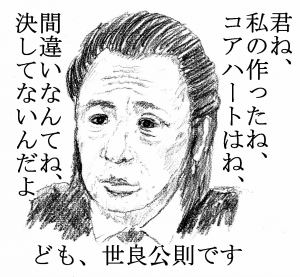 君ね、
私の作ったね、
コアハートはね、
間違いなんてね、
決してないんだよ
ども、世良公則です